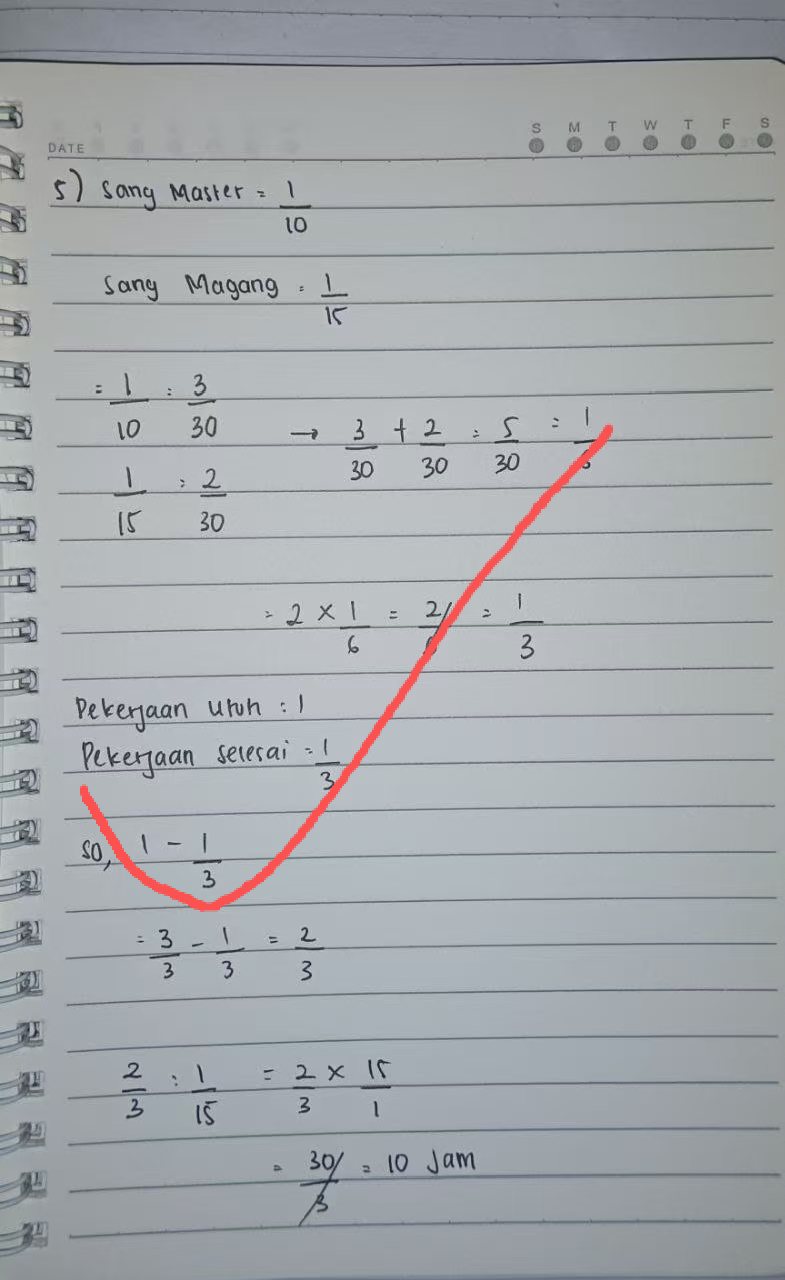 S M T W T F S
DATE
5) Sang Master = 1/10
Sang Magang = 1/15
= 1/10 = 3/30
→ 3/30 + 2/30 = 5/30 = 1/6
1/15 = 2/30
= 2 × 1/6 = 2/6 = 1/3
Pekerjaan utuh : 1
Pekerjaan selesai = 1/3
SO, 1 - 1/3
= 3/3 - 1/3 = 2/3
2/3 : 1/15 = 2/3 × 15/1
= 30/3 = 10 Jam